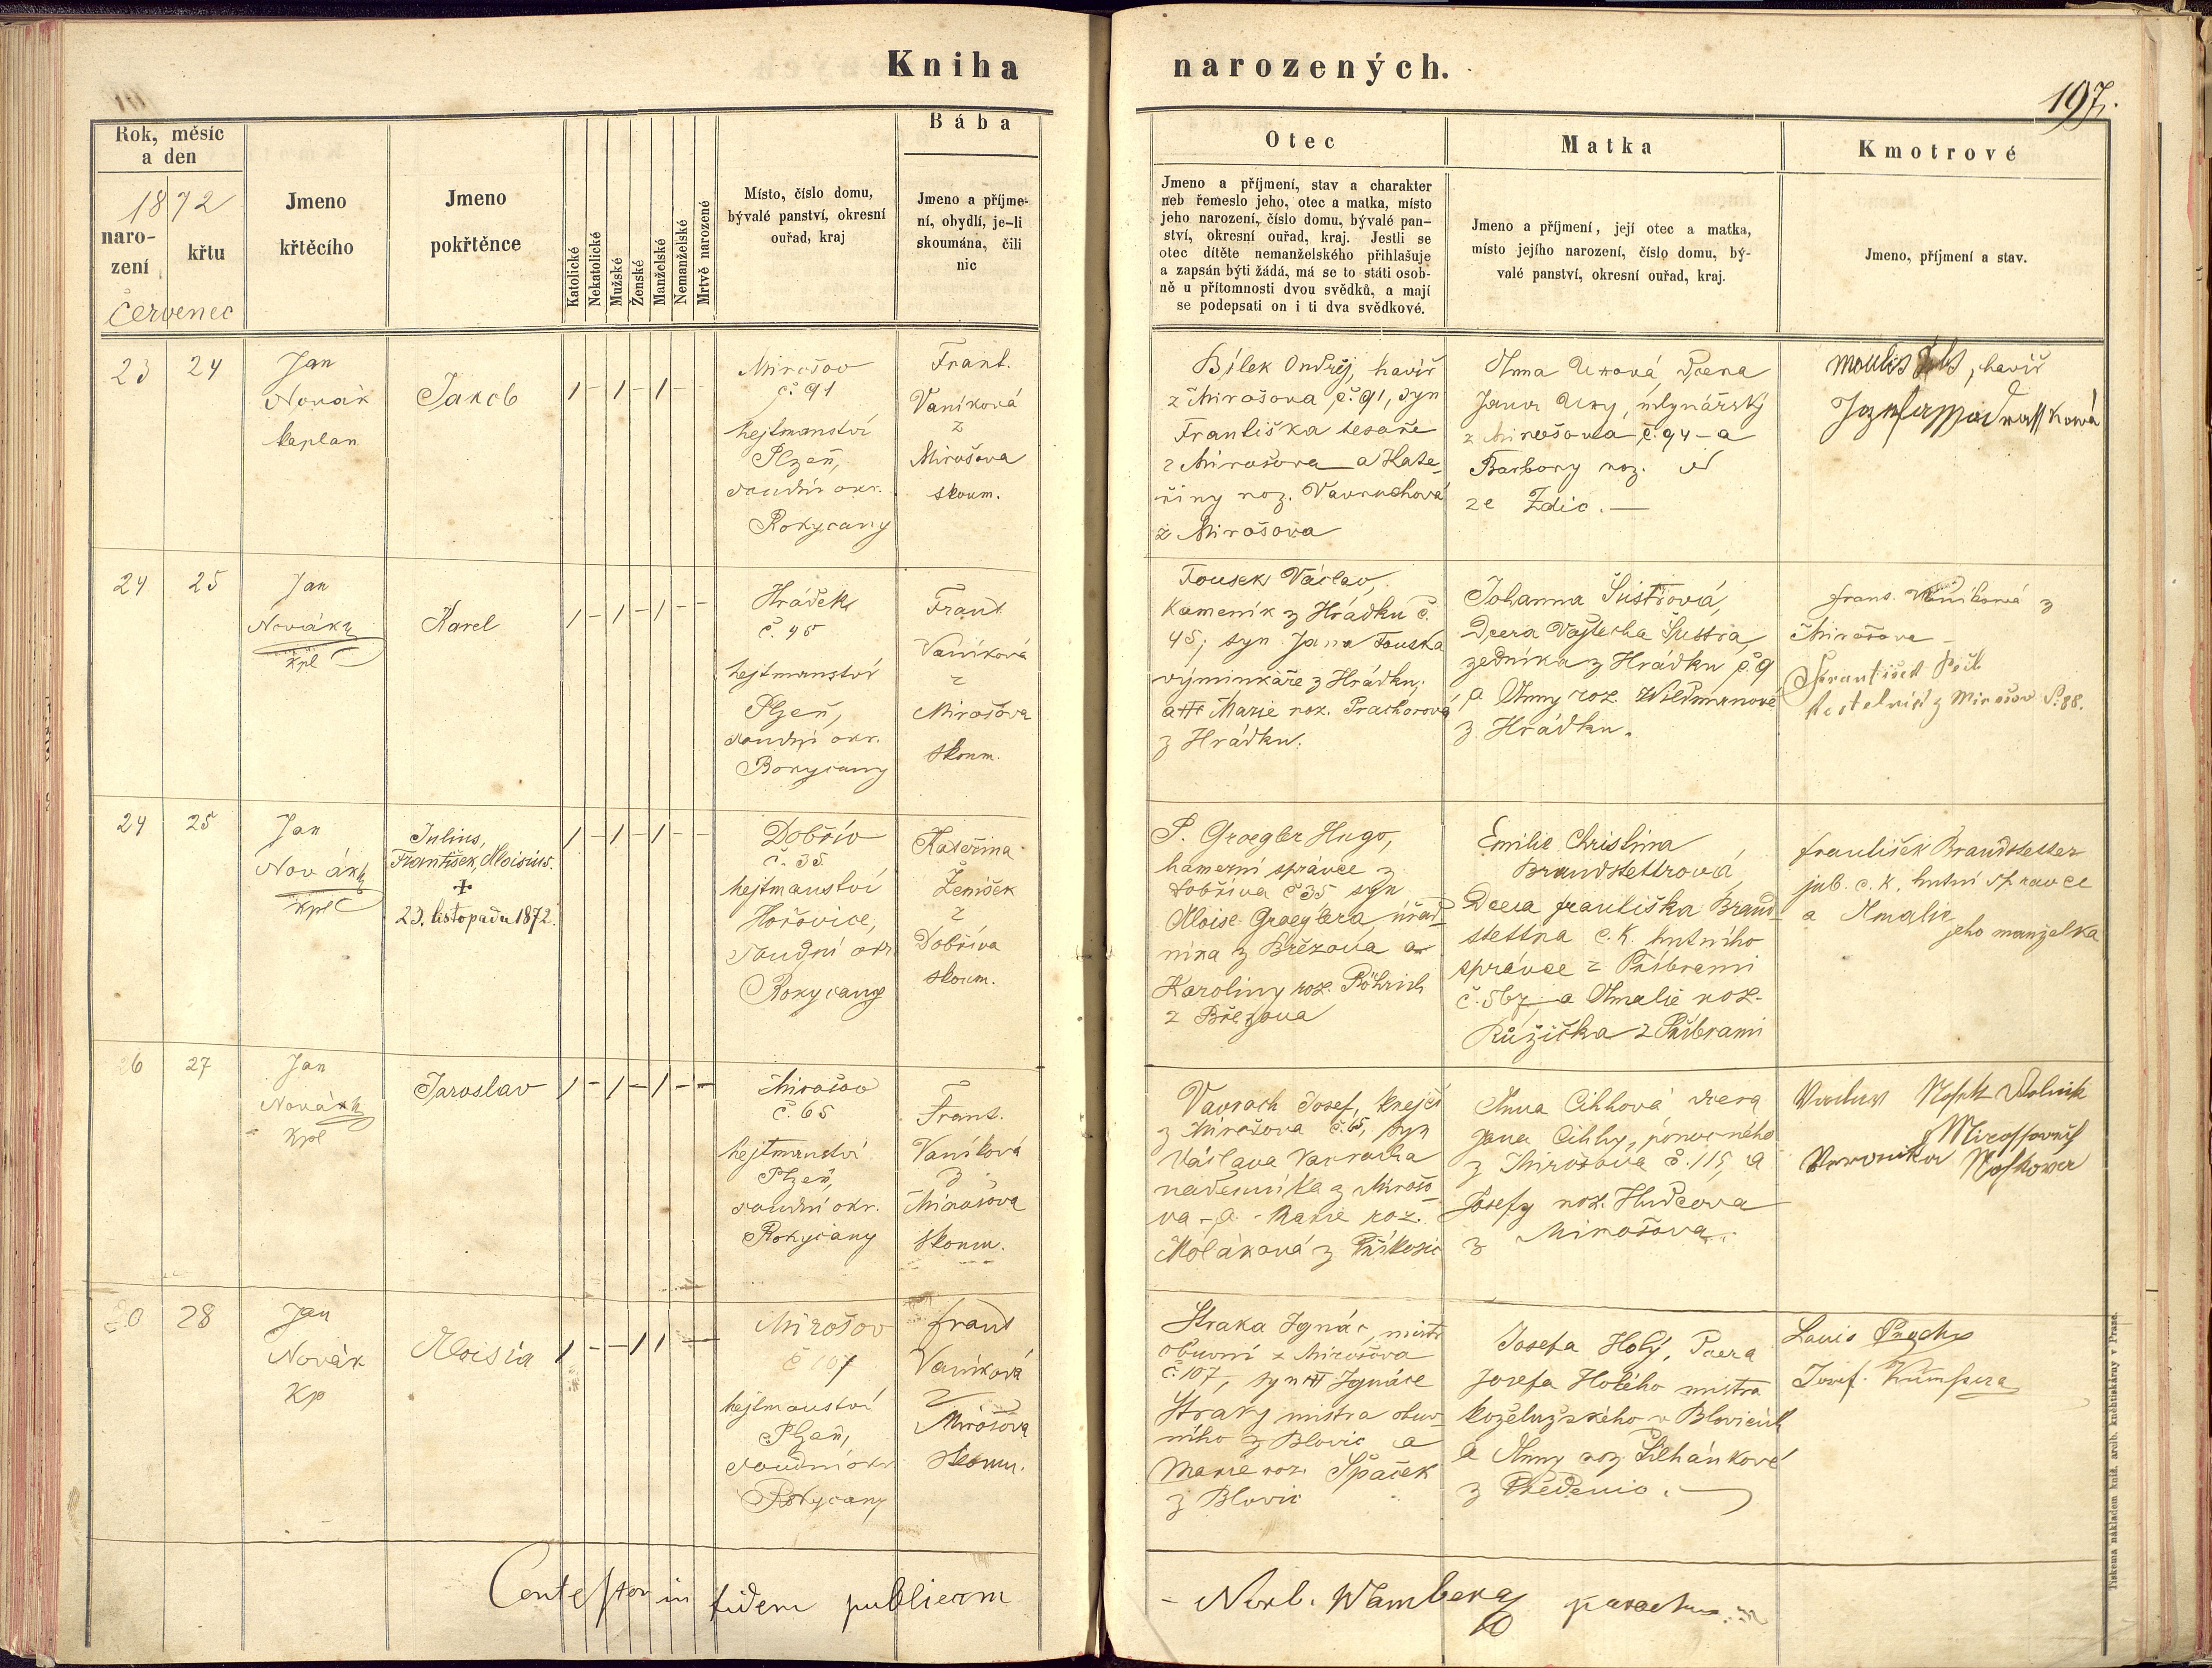 Kniha
narozených.
197.
Rok, měsíc
a den
1872
naro-
zení
křtu
červenec
Jmeno
křtěcího
Jmeno
pokřtěnce
Katolické
Nekatolické
Mužské
Ženské
Manželské
Nemanželské
Mrtvě narozené
Místo, číslo domu,
bývalé panství, okresní
ouřad, kraj
Bába
Jmeno a příjme-
ní, obydlí, je-li
skoumána, čili
nic
Otec
Jmeno a příjmení, stav a charakter
neb řemeslo jeho, otec a matka, místo
jeho narození, číslo domu, bývalé pan-
ství, okresní ouřad, kraj. Jestli se
otec dítěte nemanželského přihlašuje
a zapsán býti žádá, má se to státi osob-
ně u přítomnosti dvou svědků, a mají
se podepsati on i ti dva svědkové.
Matka
Jmeno a příjmení, její otec a matka,
místo jejího narození, číslo domu, bý-
valé panství, okresní ouřad, kraj.
Kmotrové
Jmeno, příjmení a stav.
23
24
Jan
Novák
kaplan
Jakob
1 - 1 - 1 - -
Mirošov
č. 91
hejtmanství
Plzeň,
soudní okr.
Rokycany
Frant.
Vaníková
z
Mirošova
skoum.
Bílek Ondřej, havíř
z Mirošova č. 91, syn
Františka tesaře
z Mirošova a Kate-
řiny roz.
z Mirošova
Anna dcera
Jana mlynářský
z Mirošova č. 94 a
Barbory roz.
ze Zdic. —
Moulis, havíř
24
25
Jan
Novák
kpl
Karel
1 - 1 - 1 - -
Hrádek
č. 45
hejtmanství
Plzeň,
soudní okr.
Rokycany
Frant.
Vaníková
z
Mirošova
skoum.
Tousek Václav,
Kameník z Hrádku č.
45, syn Jana Touska
výminkáře z Hrádku,
a Marie roz. Prachorová
z Hrádku.
Johanna Šustrová,
dcera Vojtěcha Šustra,
zedníka z Hrádku č. 9
a Anny roz. Wildmanové
z Hrádku.
Frant. Vaníková z
Mirošova
František
kostelník z Mirošov č. 88.
24
25
Jan
Novák
kpl
Julius,
František, Aloisius.
+
23. listopadu 1872.
1 - 1 - 1 - -
Dobřív
č. 35
hejtmanství
Hořovice,
soudní okr.
Rokycany
Kateřina
Ženíšek
z
Dobříva
skoum.
P. Groegler Hugo,
hamerní správce z
Dobříva č 35 syn
Aloise Groeglera, úřad-
níka z Březova a
Karoliny roz. Röhrich
z Březova
Emilie Christina
Brandstettrová,
Dcera Františka Brand-
stettra c. k. hutního
správce z Příbrami
č. 567 a Amalie roz.
Růžička z Příbrami
František Brandstetter
jub. c. k. hutní správce
a Amalie
jeho manželka
26
27
Jan
Novák
kpl
Jaroslav
1 - 1 - 1 - -
Mirošov
č. 65
hejtmanství
Plzeň,
soudní okr.
Rokycany
Frant.
Vaníková
z
Mirošova
skoum.
Vavrach Josef, krejčí
z Mirošova č. 65, syn
Václava Vavracha
nádenníka z Mirošo-
va a Marie roz.
z Příkosic
Anna Cihlová dcera
Jana Cihly,
z Mirošova č. 115, a
Josefy roz. Hudcova
z Mirošova.
Veronika Noskova
28
Jan
Novák
kp
Aloisia
1 - - 1 1 - -
Mirošov
č 107
hejtmanství
Plzeň,
soudní okr
Rokycany
Frant
Vaníková
z
Mirošova
skoum.
Straka Ignác, mistr
obuvní z Mirošova
č. 107, syn Ignáce
Straky mistra obuv-
ního z Blovic a
Marie roz. Špaček
z Blovic
Josefa Holý, Dcera
Josefa Holého mistra
koželužského v Blovicích
a Anny roz. Silhánkové
z Předenic.
Louis
Josef
Contestor in fidem publicam
- Norb. Wamberg parochus.
Tiskema nákladem kníž. arcib. kněhtiskárny v Praze.